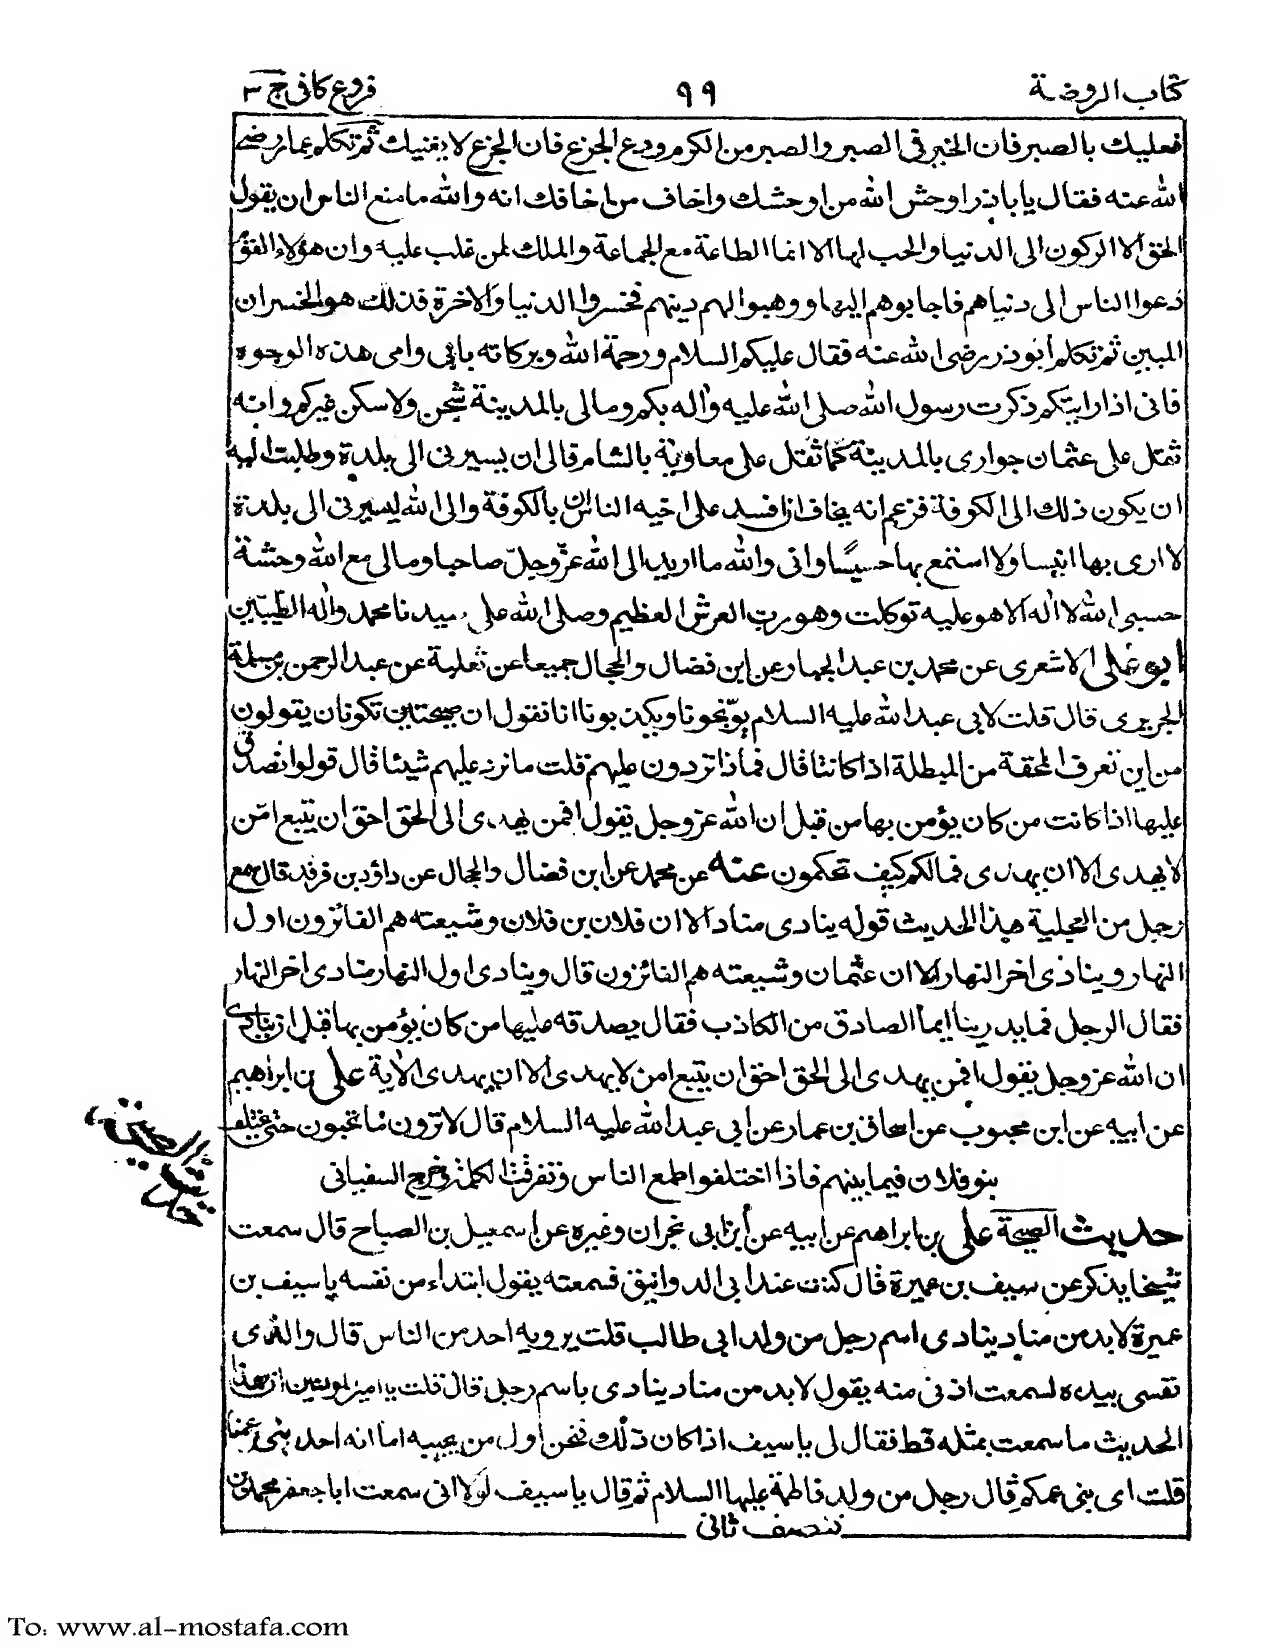 كتاب الروضة
٩٩
فروع كافى ج ٣
فعليك بالصبر فان الخير فى الصبر والصبر من الكرم ودع الجزع فان الجزع لا يغنيك ثم تكلم عمار رضى
الله عنه فقال يا باذر اوحش الله من اوحشك واخاف من اخافك انه والله ما منع الناس ان يقول
الحق الا الركون الى الدنيا والحب لها الا انما الطاعة مع الجماعة والملك لمن غلب عليه وان هؤلاء القوم
دعوا الناس الى دنياهم فاجابوهم اليها ووهبوا لهم دينهم فخسروا الدنيا والاخرة فذلك هو الخسران
المبين ثم تكلم ابوذر رضى الله عنه فقال عليكم السلام ورحمة الله وبركاته بابى وامى هذه الوجوه
فانى اذا رايتكم ذكرت رسول الله صلى الله عليه واله بكم ومالى بالمدينة شجن ولا سكن غيركم وانه
ثقل على عثمان جوارى بالمدينة كما ثقل على معاوية بالشام فالى ان يسيرنى الى بلدة وطلبت اليه
ان يكون ذلك الى الكوفة فزعم انه يخاف ان افسد على اخيه الناس بالكوفة والى الله ليسيرنى الى بلدة
لا ارى بها انيسا ولا استمع بها حسيسًا وانى والله ما اريد الى الله عزّ وجلّ صاحبا ومالى مع الله وحشة
حسبى الله لا اله الا هو عليه توكلت وهو رب العرش العظيم وصلى الله على سيدنا محمد واله الطيّبين
ابو على الاشعرى عن محمد بن عبد الجبار عن ابن فضال والحجال جميعا عن ثعلبة عن عبد الرحمن بن مسلمة
الجريرى قال قلت لابى عبد الله عليه السلام يوبّخونا ويكذبونا انا نقول ان صيحتين تكونان يقولون
من اين تعرف المحقة من المبطلة اذا كانتا قال فماذا تردون عليهم قلت ما نرد عليهم شيئا قال قولوا نصدق
عليها اذا كانت من كان يؤمن بها من قبل ان الله عز وجل يقول افمن يهدى الى الحق احق ان يتبع امّن
لا يهدى الا ان يهدى فمالكم كيف تحكمون عنه عن محمد عن ابن فضال والحجال عن داؤد بن فرقد قال سمع
رجل من العجلية هذا الحديث قوله ينادى مناد الا ان فلان بن فلان وشيعته هم الفائزون اول
النهار وينادى اخر النهار الا ان عثمان وشيعته هم الفائزون قال وينادى اول النهار منادى اخر النهار
فقال الرجل فما يدرينا ايما الصادق من الكاذب فقال يصدقه عليها من كان يؤمن بها قبل ان ينادى
ان الله عز وجل يقول افمن يهدى الى الحق احق ان يتبع امن لا يهدى الا ان يهدى الاية على بن ابراهيم
عن ابيه عن ابن محبوب عن اسحاق بن عمار عن ابى عبد الله عليه السلام قال لا ترون ما تحبون حتى يختلف
بنو فلان فيما بينهم فاذا اختلفوا طمع الناس وتفرقت الكلمة وخرج السفيانى
حديث الصيحة
حديث الصيحة على بن ابراهيم عن ابيه عن ابن ابى نجران وغيره عن اسمعيل بن الصباح قال سمعت
شيخا يذكر عن سيف بن عميرة قال كنت عند ابى الدوانيق فسمعته يقول ابتداء من نفسه يا سيف بن
عميرة لابد من مناد ينادى اسم رجل من ولد ابى طالب قلت يرويه احد من الناس قال والذى
نفسى بيده لسمعت اذنى منه يقول لابد من مناد ينادى باسم رجل قال قلت يا امير المومنين ان هذا
الحديث ما سمعت بمثله قط فقال لى يا سيف اذا كان ذلك فنحن اول من يجيبه اما انه احد بنى عمنا
قلت اى بنى عمكم قال رجل من ولد فاطمة عليها السلام ثم قال يا سيف لولا انى سمعت ابا جعفر محمد بن
نصف ثانى
To: www.al-mostafa.com